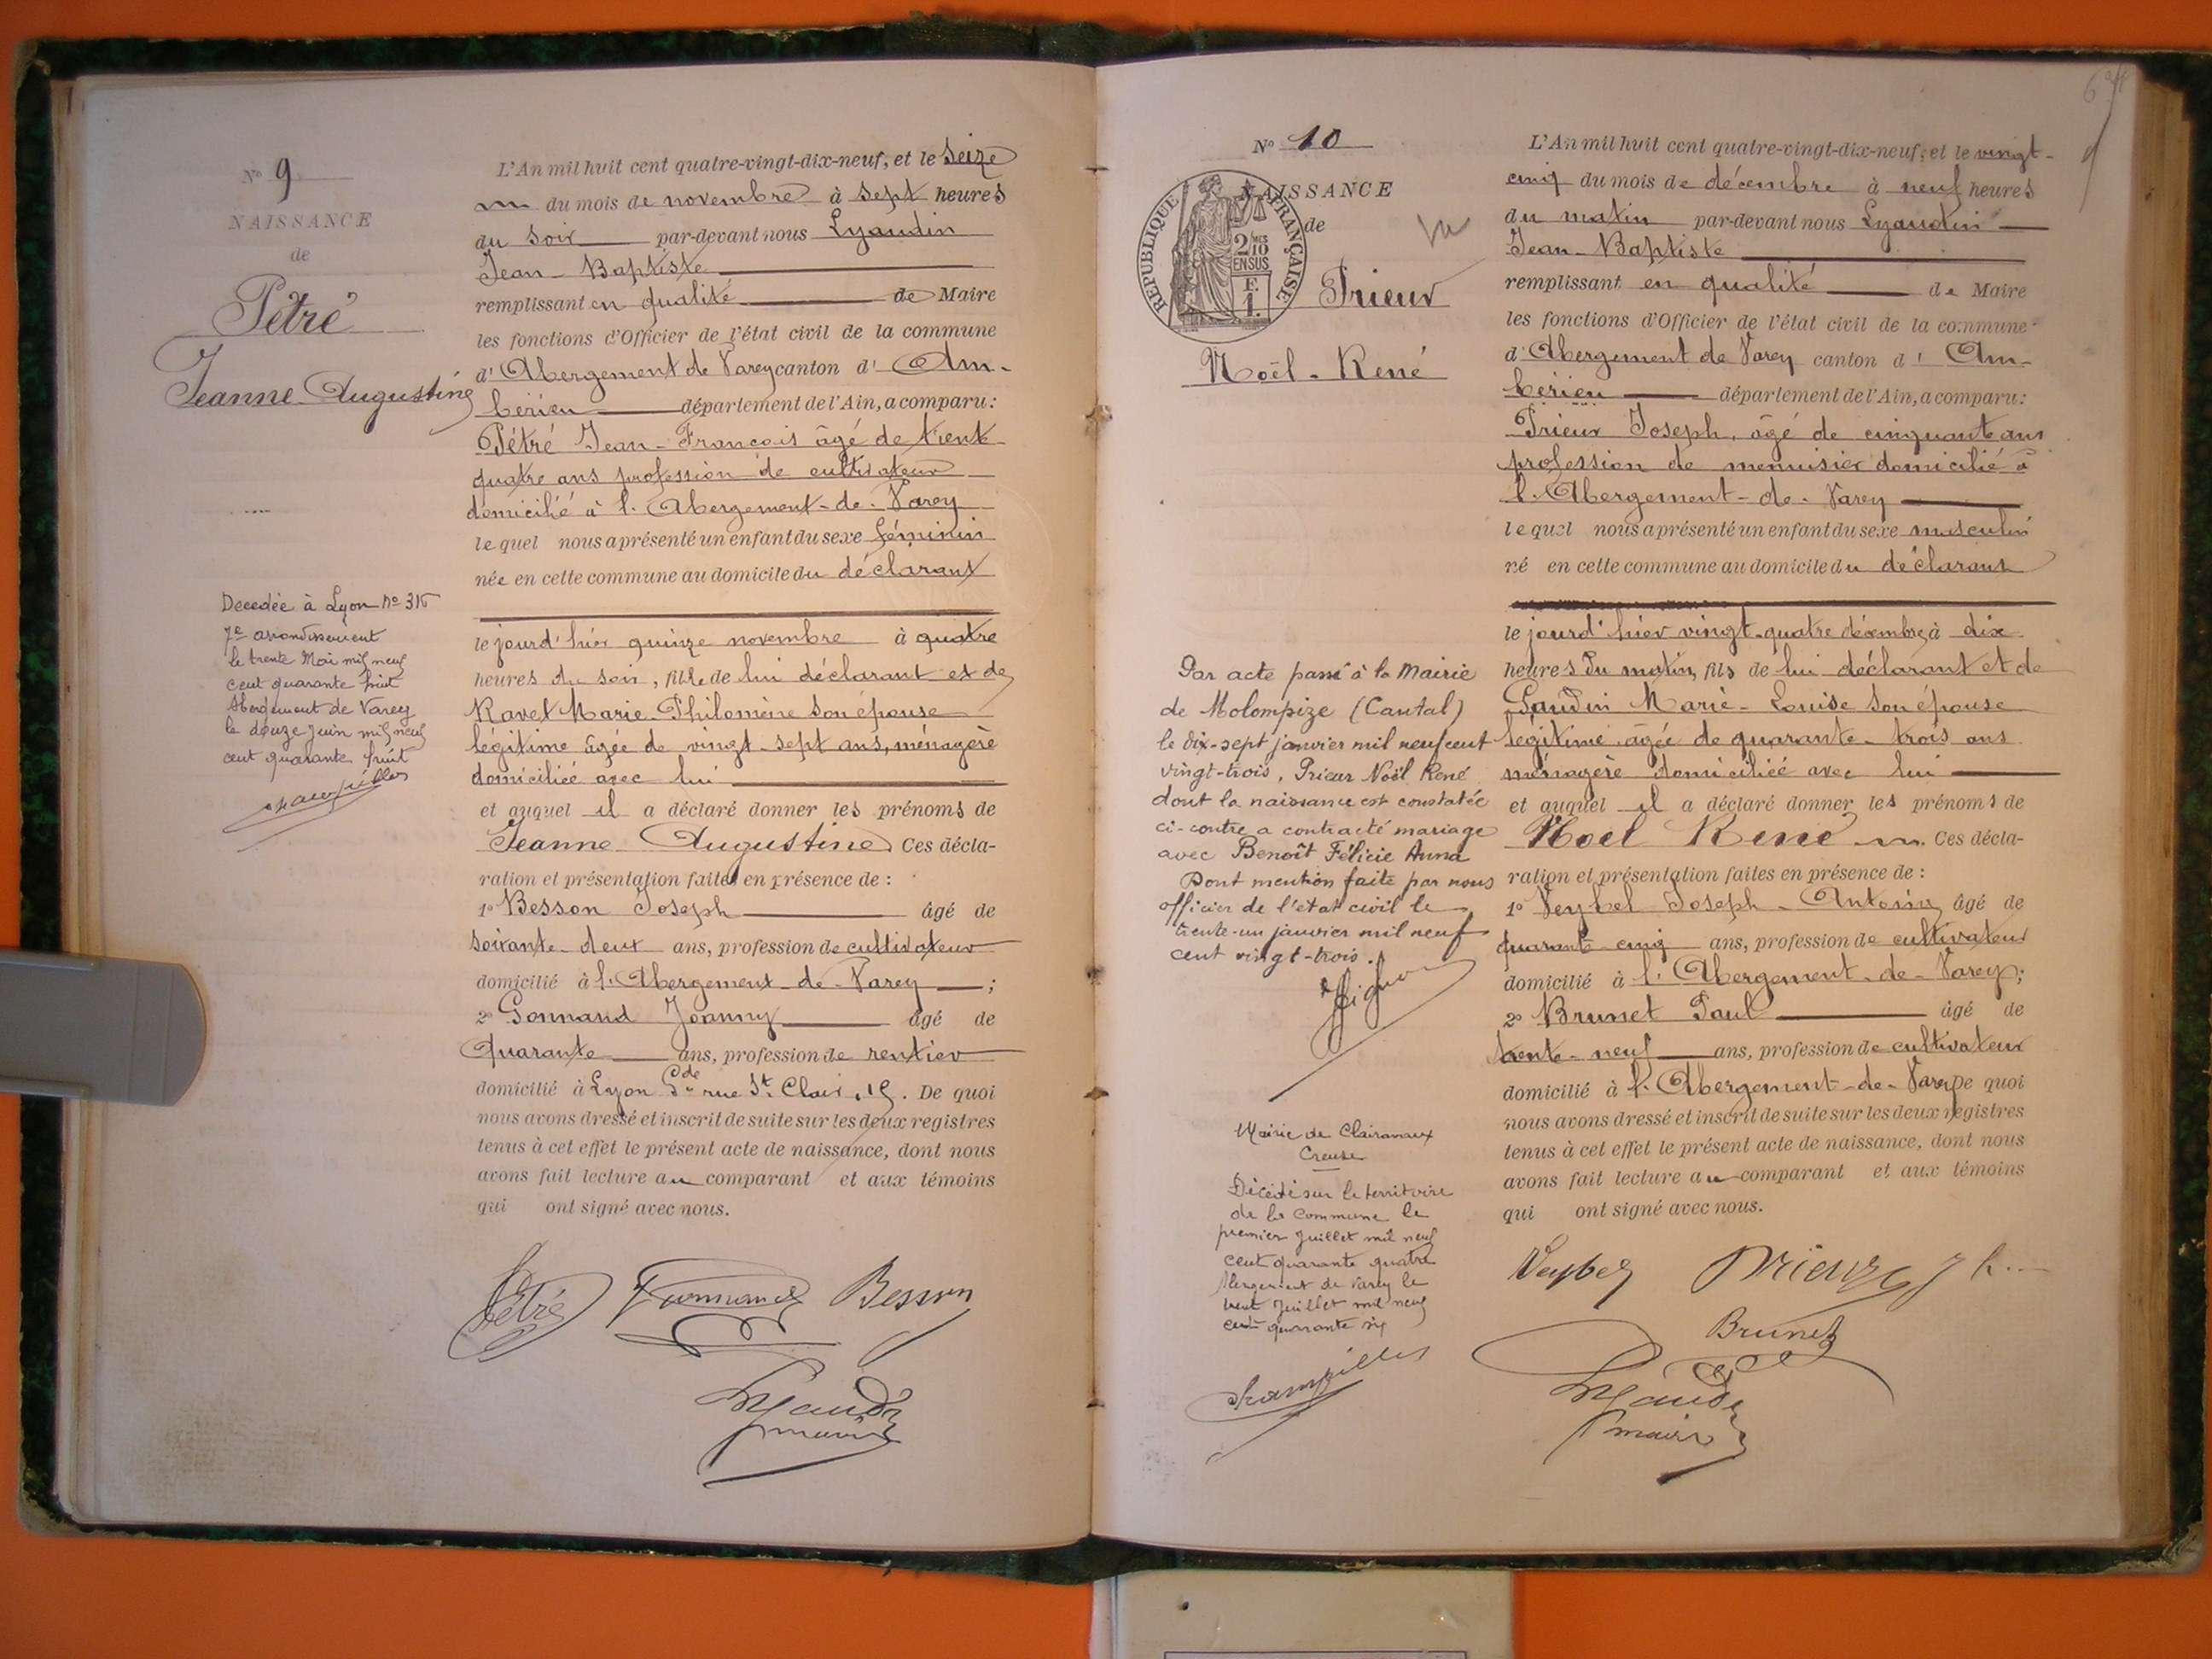 N° 9
NAISSANCE
de
Pétré
Jeanne Augustine
Decedée à Lyon N° 315
7e arrondissement
le trente Mai mil neuf
cent quarante huit
Abergement de Varey
le douze juin mil neuf
cent quarante huit
L'An mil huit cent quatre-vingt-dix-neuf, et le seize
du mois de novembre à sept heures
du soir par-devant nous Lyaudin
Jean-Baptiste
remplissant en qualité de Maire
les fonctions d'Officier de l'état civil de la commune
d'Abergement de Varey canton d'Am-
bérieu département de l'Ain, a comparu:
Pétré Jean-François âgé de trente
quatre ans profession de cultivateur
domicilié à l'Abergement-de-Varey
lequel nous a présenté un enfant du sexe féminin
née en cette commune au domicile du déclarant
le jourd'hier quinze novembre à quatre
heures du soir, fille de lui déclarant et de
Ravet Marie-Philomène son épouse
légitime âgée de vingt-sept ans, ménagère
domiciliée avec lui
et auquel il a déclaré donner les prénoms de
Jeanne Augustine Ces décla-
ration et présentation faites en présence de :
1° Besson Joseph âgé de
soixante-deux ans, profession de cultivateur
domicilié à l'Abergement-de-Varey ;
2° Gonnand Joanny âgé de
Quarante ans, profession de rentier
domicilié à Lyon Gde rue St Clair, 15. De quoi
nous avons dressé et inscrit de suite sur les deux registres
tenus à cet effet le présent acte de naissance, dont nous
avons fait lecture au comparant et aux témoins
qui ont signé avec nous.
Pétré Gonnand Besson
Lyaudin
maire
N° 10
NAISSANCE
de
RÉPUBLIQUE FRANÇAISE
2/10 MES
EN SUS
F.
1.
Prieur
Noël-René
Par acte passé à la Mairie
de Molompize (Cantal)
le dix-sept janvier mil neuf cent
vingt-trois, Prieur Noël René
dont la naissance est constatée
ci-contre a contracté mariage
avec Benoît Félicie Anna
Dont mention faite par nous
officier de l'état civil le
trente-un janvier mil neuf
cent vingt-trois.
Mairie de Clairavaux
Creuse
Décédé sur le territoire
de la Commune le
premier Juillet mil neuf
cent quarante quatre
Abergement de Varey le
Juillet mil neuf
cent quarante six
L'An mil huit cent quatre-vingt-dix-neuf, et le vingt-
cinq du mois de décembre à neuf heures
du matin par-devant nous Lyaudin
Jean-Baptiste
remplissant en qualité de Maire
les fonctions d'Officier de l'état civil de la commune
d'Abergement de Varey canton d'Am-
bérieu département de l'Ain, a comparu:
Prieur Joseph, âgé de cinquante ans
profession de menuisier domicilié à
l'Abergement-de-Varey
lequel nous a présenté un enfant du sexe masculin
né en cette commune au domicile du déclarant
le jourd'hier vingt-quatre décembre à dix
heures du matin, fils de lui déclarant et de
Gaudin Marie-Louise son épouse
légitime âgée de quarante-trois ans
ménagère domiciliée avec lui
et auquel il a déclaré donner les prénoms de
Noël René Ces décla-
ration et présentation faites en présence de :
1° Veybel Joseph-Antoine âgé de
quarante-cinq ans, profession de cultivateur
domicilié à l'Abergement-de-Varey;
2° Brunet Paul âgé de
trente-neuf ans, profession de cultivateur
domicilié à l'Abergement-de-Varey De quoi
nous avons dressé et inscrit de suite sur les deux registres
tenus à cet effet le présent acte de naissance, dont nous
avons fait lecture au comparant et aux témoins
qui ont signé avec nous.
Veybel Prieur
Brunet
Lyaudin
maire